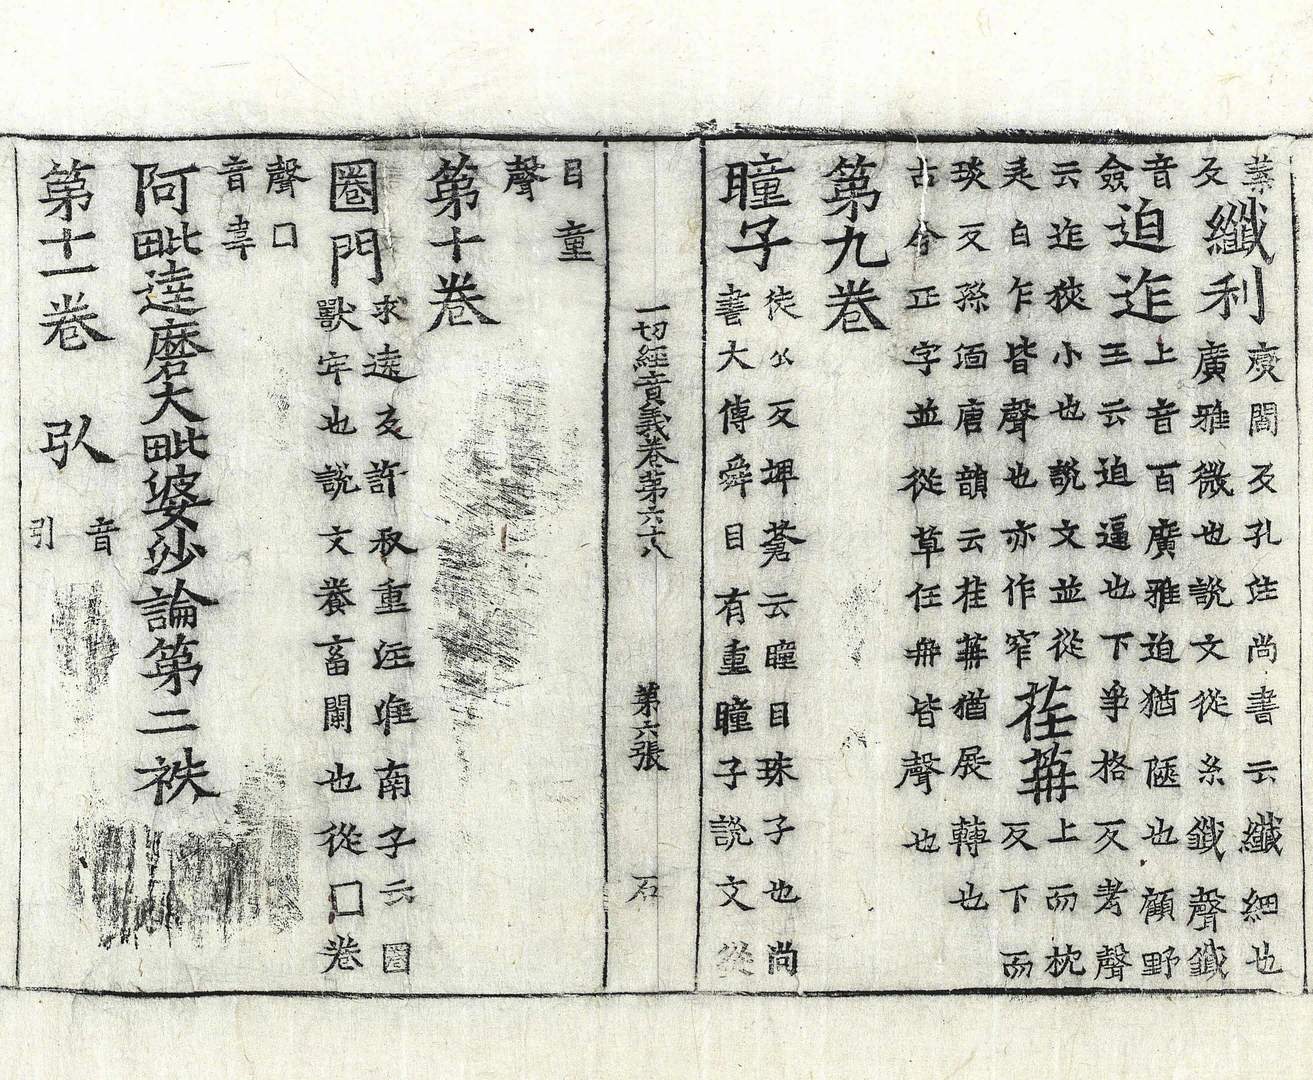 蒸
反
纖利
㢘閻反孔注尚書云纖細也
廣雅微也說文從糸韱聲韱
音
僉
迫迮
上音百廣雅迫猶陿也顧野
王云迫逼也下爭格反考聲
云迮狹小也說文並從
辵白乍皆聲也亦作窄
荏苒
上而枕
反下而
琰反孫愐唐韻云荏苒猶展轉也
古今正字並從草任冉皆聲也
第九卷
瞳子
徒公反埤蒼云瞳目珠子也尚
書大傳舜目有重瞳子說文從
一切經音義卷第六十八 第六張 石
目童
聲
第十卷
圈門
求遠反許叔重注淮南子云圈
獸牢也說文養畜闌也從囗卷
聲囗
音韋
阿毗達磨大毗婆沙論第二袟
第十一卷 𢎢
音
引